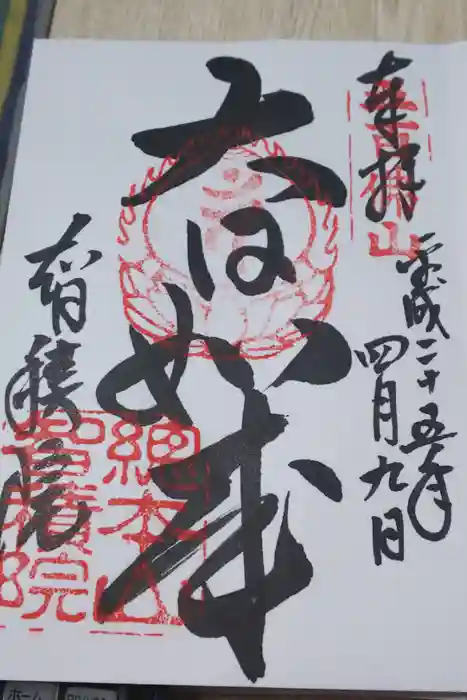 奉拝
五百佛山
平成二十五年
四月九日
大日如来
智積院
總本山
智積院
ホーム